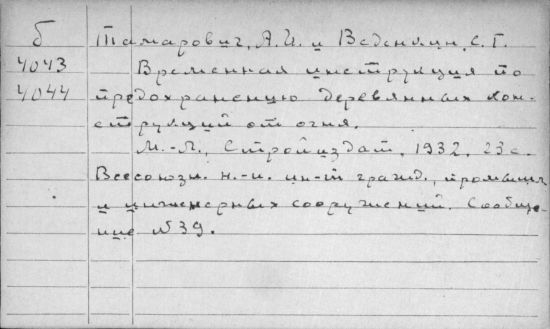 б Тамарович, А.И. и Веденяин, С.Г.
4043 Временная инструкция по
4044 предохранению деревянных кон-
струкций от огня.
М.-Л., Стройиздат, 1932. 23 с.
Всесоюзн. н.-и. ин-т гражд., промышл.
и инженерных сооружений. Сообще-
ние №39.